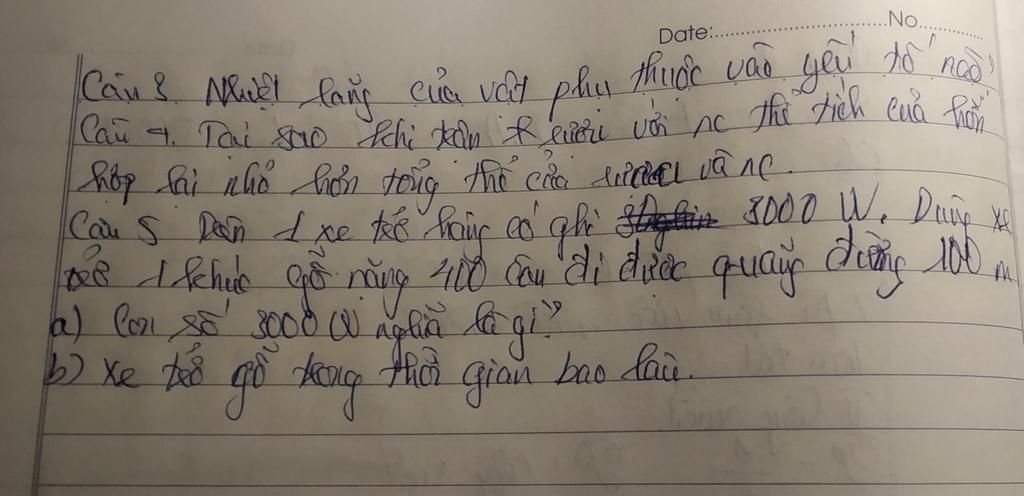 Date:..............................No..............
Câu 3. Nhiệt năng của vật phụ thuộc vào yếu tố nào?
Câu 4. Tại sao khi trộn rượu với nc thể tích của hỗn
hợp lại nhỏ hơn tổng thể của rượu và nc.
Câu 5 Trên 1 xe tải hàng có ghi 3000 W. Dùng xe
1 khúc gỗ nặng 400 đi được quãng đường 100 m
a) Con số 3000 W nghĩa là gì?
b) xe gỗ trong thời gian bao lâu.